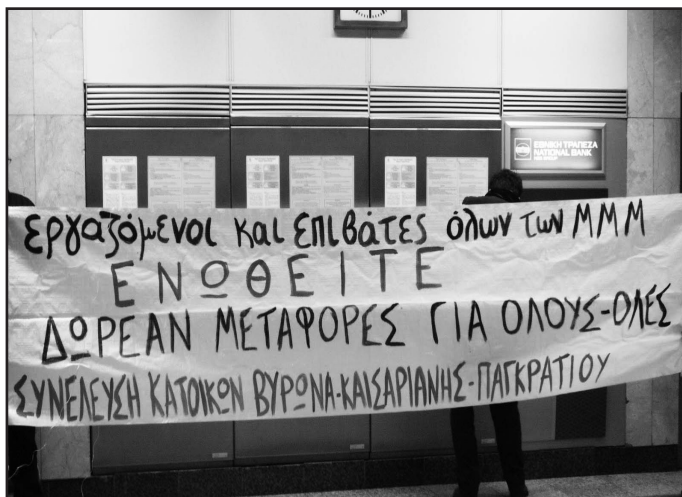 ΕΘΝΙΚΗ ΤΡΑΠΕΖΑ
NATIONAL BANK
εργαζόμενοι και επιβάτες όλων των ΜΜΜ
ΕΝΩΘΕΙΤΕ
ΔΩΡΕΑΝ ΜΕΤΑΦΟΡΕΣ ΓΙΑ ΟΛΟΥΣ-ΟΛΕΣ
ΣΥΝΕΛΕΥΣΗ ΚΑΤΟΙΚΩΝ ΒΥΡΩΝΑ-ΚΑΙΣΑΡΙΑΝΗΣ-ΠΑΓΚΡΑΤΙΟΥ